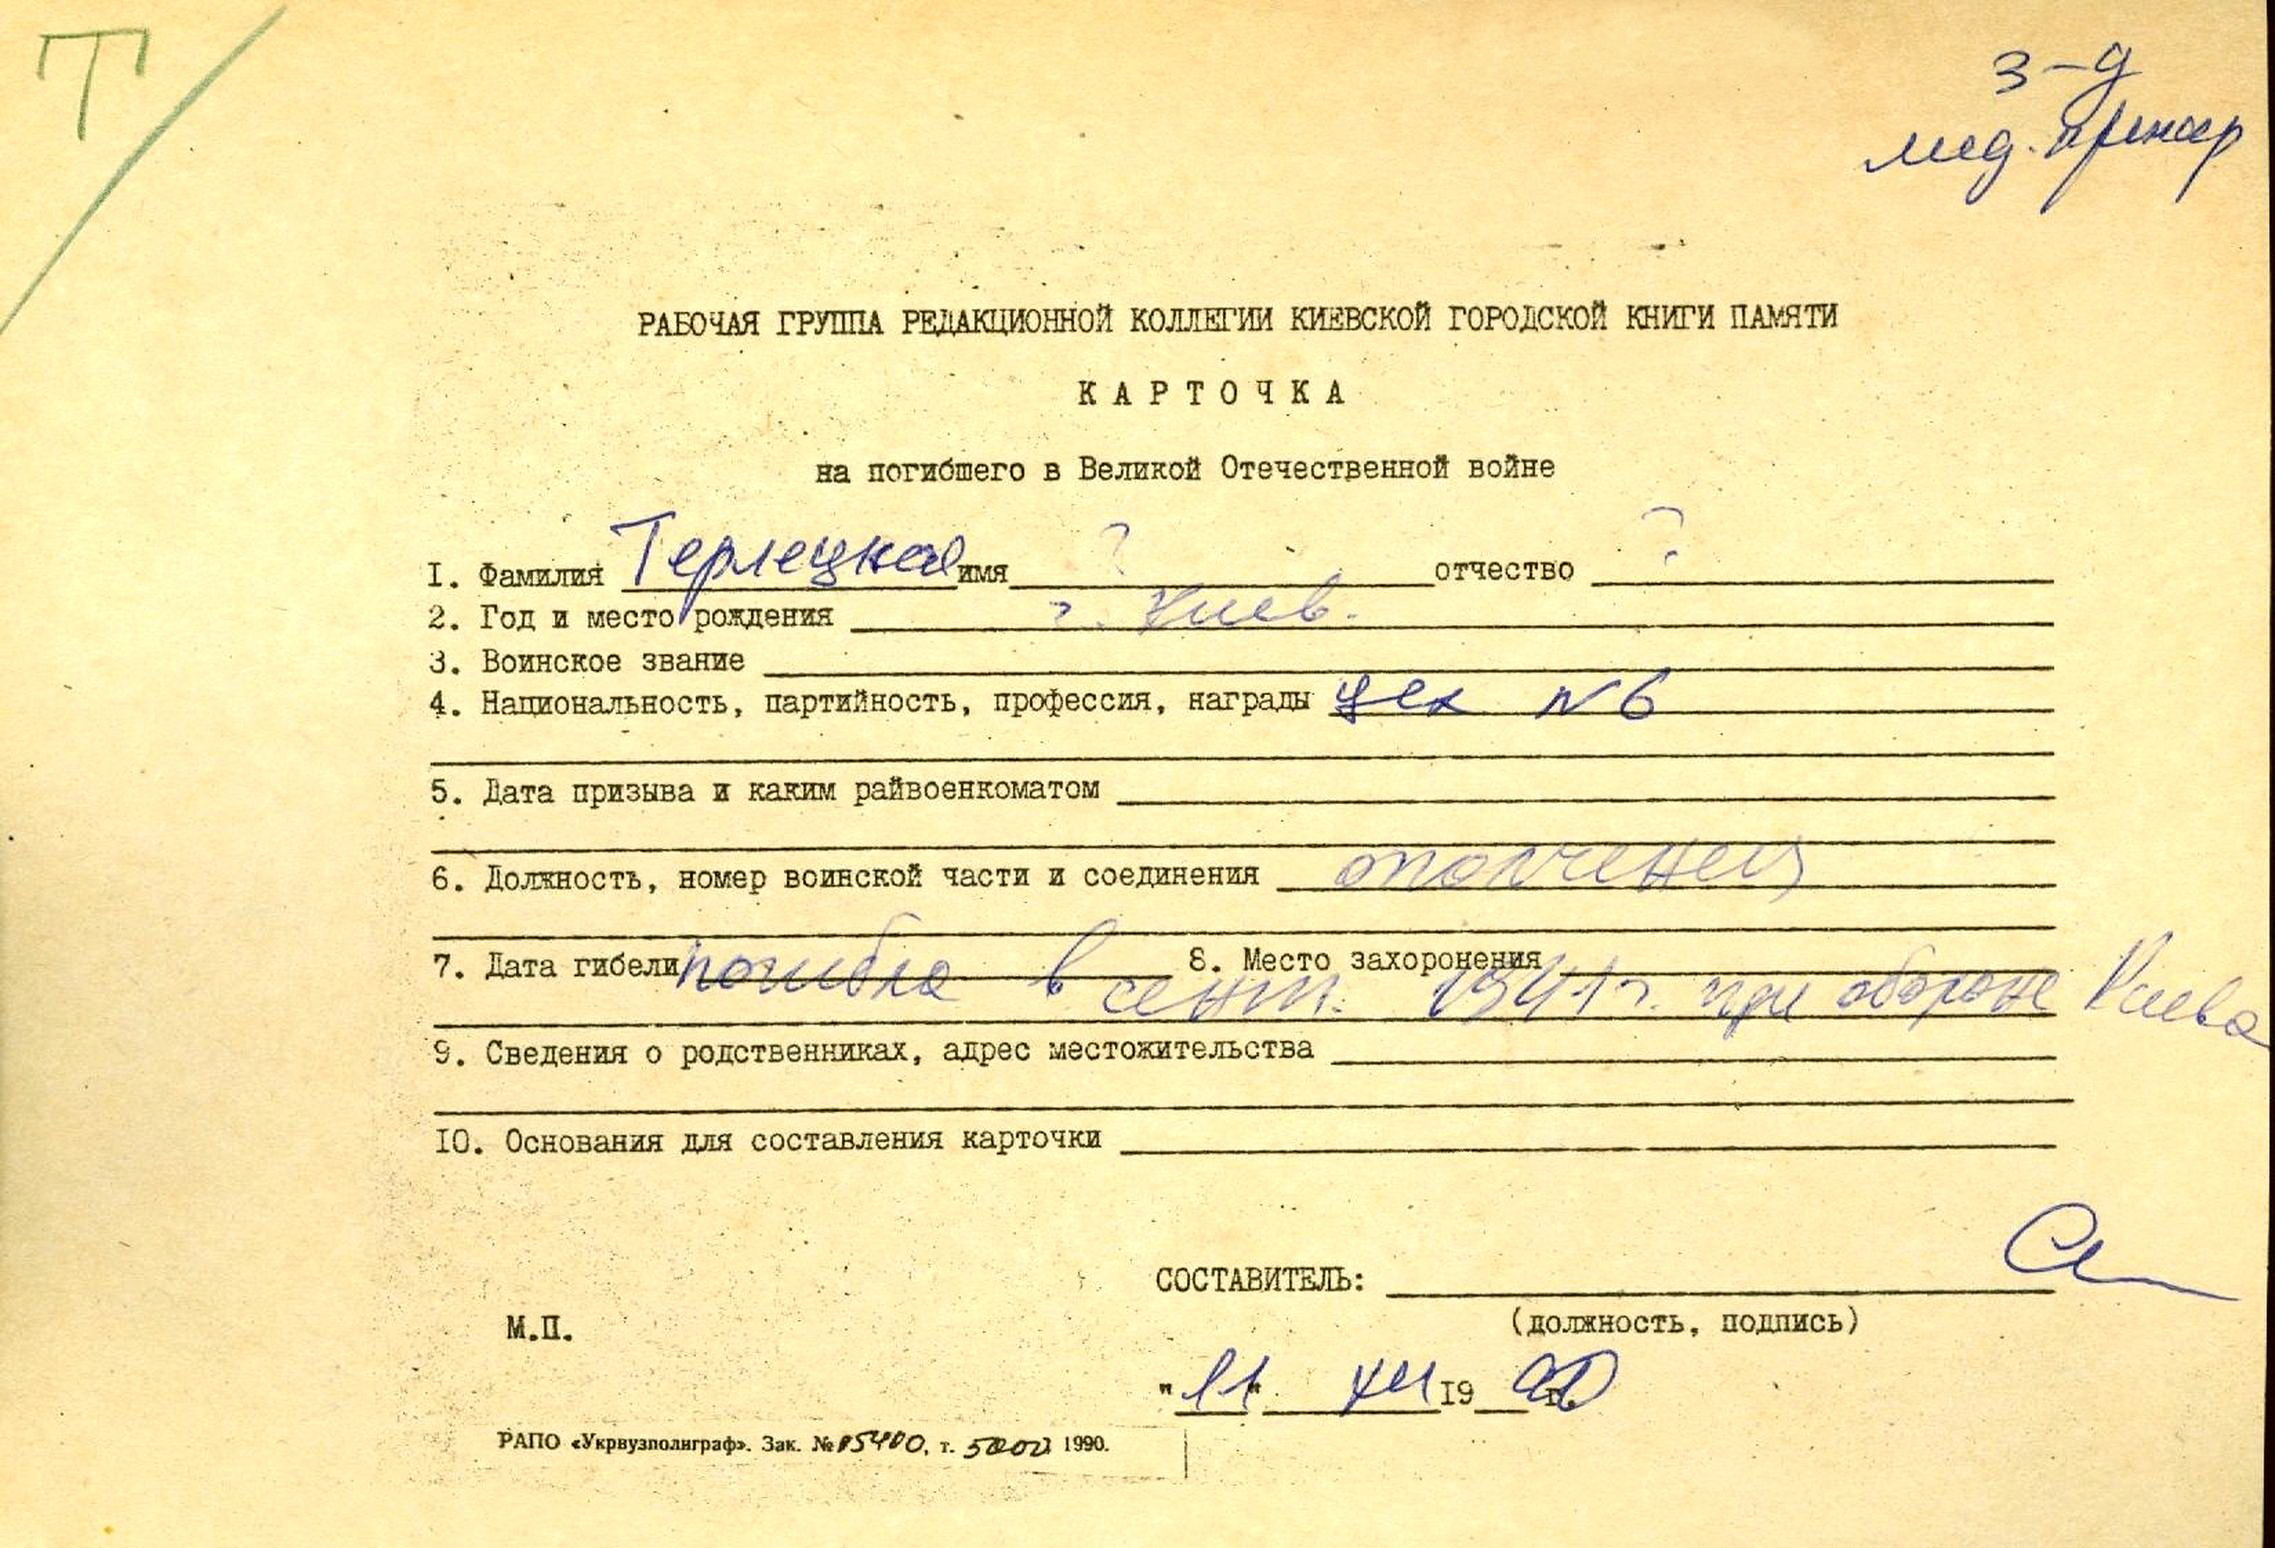 Т
з-д
мед.
РАБОЧАЯ ГРУППА РЕДАКЦИОННОЙ КОЛЛЕГИИ КИЕВСКОЙ ГОРОДСКОЙ КНИГИ ПАМЯТИ
КАРТОЧКА
на погибшего в Великой Отечественной войне
I. Фамилия Терлецкая имя ? отчество ?
2. Год и место рождения г. Киев.
3. Воинское звание
4. Национальность, партийность, профессия, награды цех №6
5. Дата призыва и каким райвоенкоматом
6. Должность, номер воинской части и соединения ополченец
7. Дата гибели 8. Место захоронения
погибла в сент. 1941 г. при обороне Киева
9. Сведения о родственниках, адрес местожительства
10. Основания для составления карточки
СОСТАВИТЕЛЬ:
М.П. (должность, подпись)
"11" XII 1990 г.
РАПО «Укрвузполиграф». Зак. № 05400, т. 5000 1990.